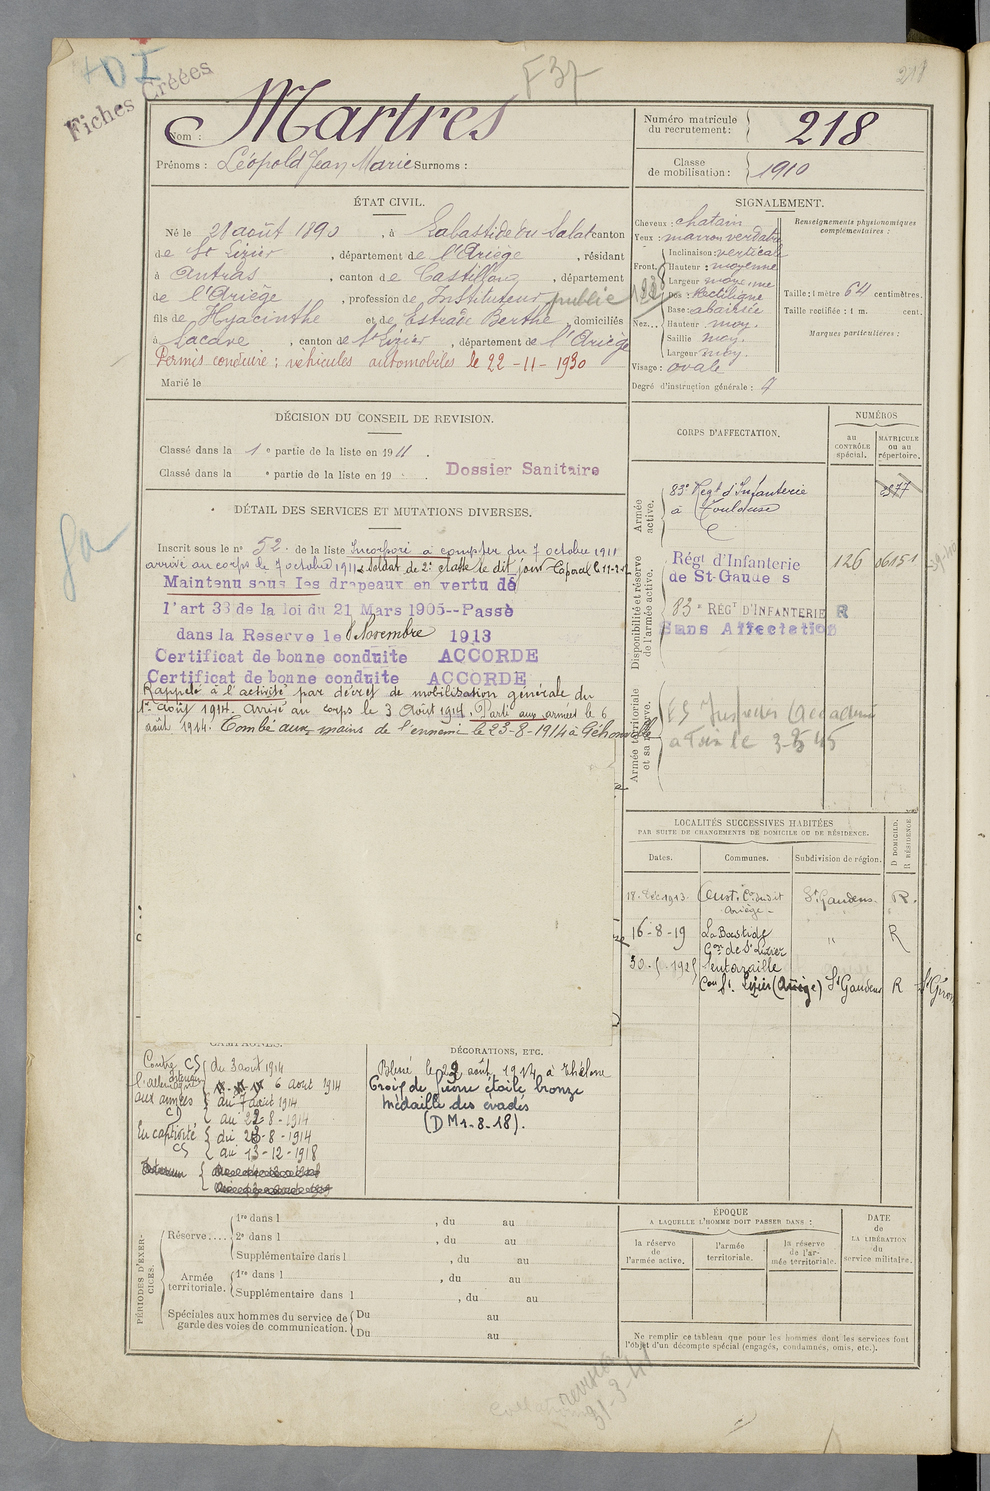 Fiches Créées
F 37
218
Nom : Martres
Prénoms : Léopold Jean Marie Surnoms :
Numéro matricule du recrutement : 218
Classe de mobilisation : 1910
ÉTAT CIVIL.
Né le 21 août 1890, à Labastide du Salat canton
de St Lizier, département de l'Ariège, résidant
à Antras, canton de Castillon, département
de l'Ariège, profession de Instituteur public
fils de Hyacinthe et de Estrade Berthe, domiciliés
à Lacave, canton de St Lizier, département de l'Ariège
Permis conduire : véhicules automobiles le 22-11-1930
Marié le
SIGNALEMENT.
Cheveux : chatain
Yeux : marron verdatre
Front. Inclinaison : verticale
Hauteur : moyenne
Largeur moyenne
Nez... Dos : Rectiligne
Base : abaissée
Hauteur moy.
Saillie moy.
Largeur moy.
Visage : ovale
Degré d'instruction générale :
Renseignements physionomiques complémentaires :
Taille : 1 mètre 64 centimètres.
Taille rectifiée : 1 m. cent.
Marques particulières :
DÉCISION DU CONSEIL DE REVISION.
Classé dans la 1e partie de la liste en 1911.
Classé dans la e partie de la liste en 19 .
Dossier Sanitaire
DÉTAIL DES SERVICES ET MUTATIONS DIVERSES.
Inscrit sous le no 52. de la liste Incorporé à compter du 7 octobre 1911
arrivé au corps le 7 octobre 1911 soldat de 2e classe le dit jour Caporal le
Maintenu sous les drapeaux en vertu de
l'art 33 de la loi du 21 Mars 1905--Passé
dans la Reserve le 8 Novembre 1913
Certificat de bonne conduite ACCORDE
Certificat de bonne conduite ACCORDE
Rappelé à l'activité par décret de mobilisation générale du
1er août 1914. Arrivé au corps le 3 Août 1914. Parti aux armées le 6
août 1914. Tombé aux mains de l'ennemi le 23-8-1914 à
CORPS D'AFFECTATION.
NUMÉROS
au CONTRÔLE spécial.
MATRICULE ou au répertoire.
Armée active.
83e Régt d'Infanterie
à Toulouse
Disponibilité et réserve de l'armée active.
Régt d'Infanterie
de St-Gaudens
126
06151
83e RÉGT D'INFANTERIE R
Sans Affectation
Armée territoriale et sa réserve.
LOCALITÉS SUCCESSIVES HABITÉES
PAR SUITE DE CHANGEMENTS DE DOMICILE OU DE RÉSIDENCE.
Dates.
Communes.
Subdivision de région.
D DOMICILE. R RÉSIDENCE
18 Déc 1913
Ariège
St Gaudens
R.
16-8-19
La Bastide
Con de St Lizier
"
R
1925
Mentaraille
Con St. Lizier (Ariège)
St Gaudens
R
CAMPAGNES.
Contre l'allemagne CS du 3 août 1914
intérieur 6 août 1914
aux armées du 7 août 1914
CD au 22-8-1914
En captivité du 23-8-1914
CS au 13-12-1918
DÉCORATIONS, ETC.
Blessé le 22 août 1914 à
Croix de guerre étoile bronze
Médaille des évadés
(DM 1-8-18).
PÉRIODES D'EXERCICES.
Réserve.... 1re dans l , du au
2e dans l , du au
Supplémentaire dans l , du au
Armée territoriale. 1re dans l , du au
Supplémentaire dans l , du au
Spéciales aux hommes du service de garde des voies de communication. Du au
Du au
ÉPOQUE
A LAQUELLE L'HOMME DOIT PASSER DANS :
la réserve de l'armée active.
l'armée territoriale.
la réserve de l'armée territoriale.
DATE de LA LIBÉRATION du service militaire.
Ne remplir ce tableau que pour les hommes dont les services font
l'objet d'un décompte spécial (engagés, condamnés, omis, etc.).
31-3-41